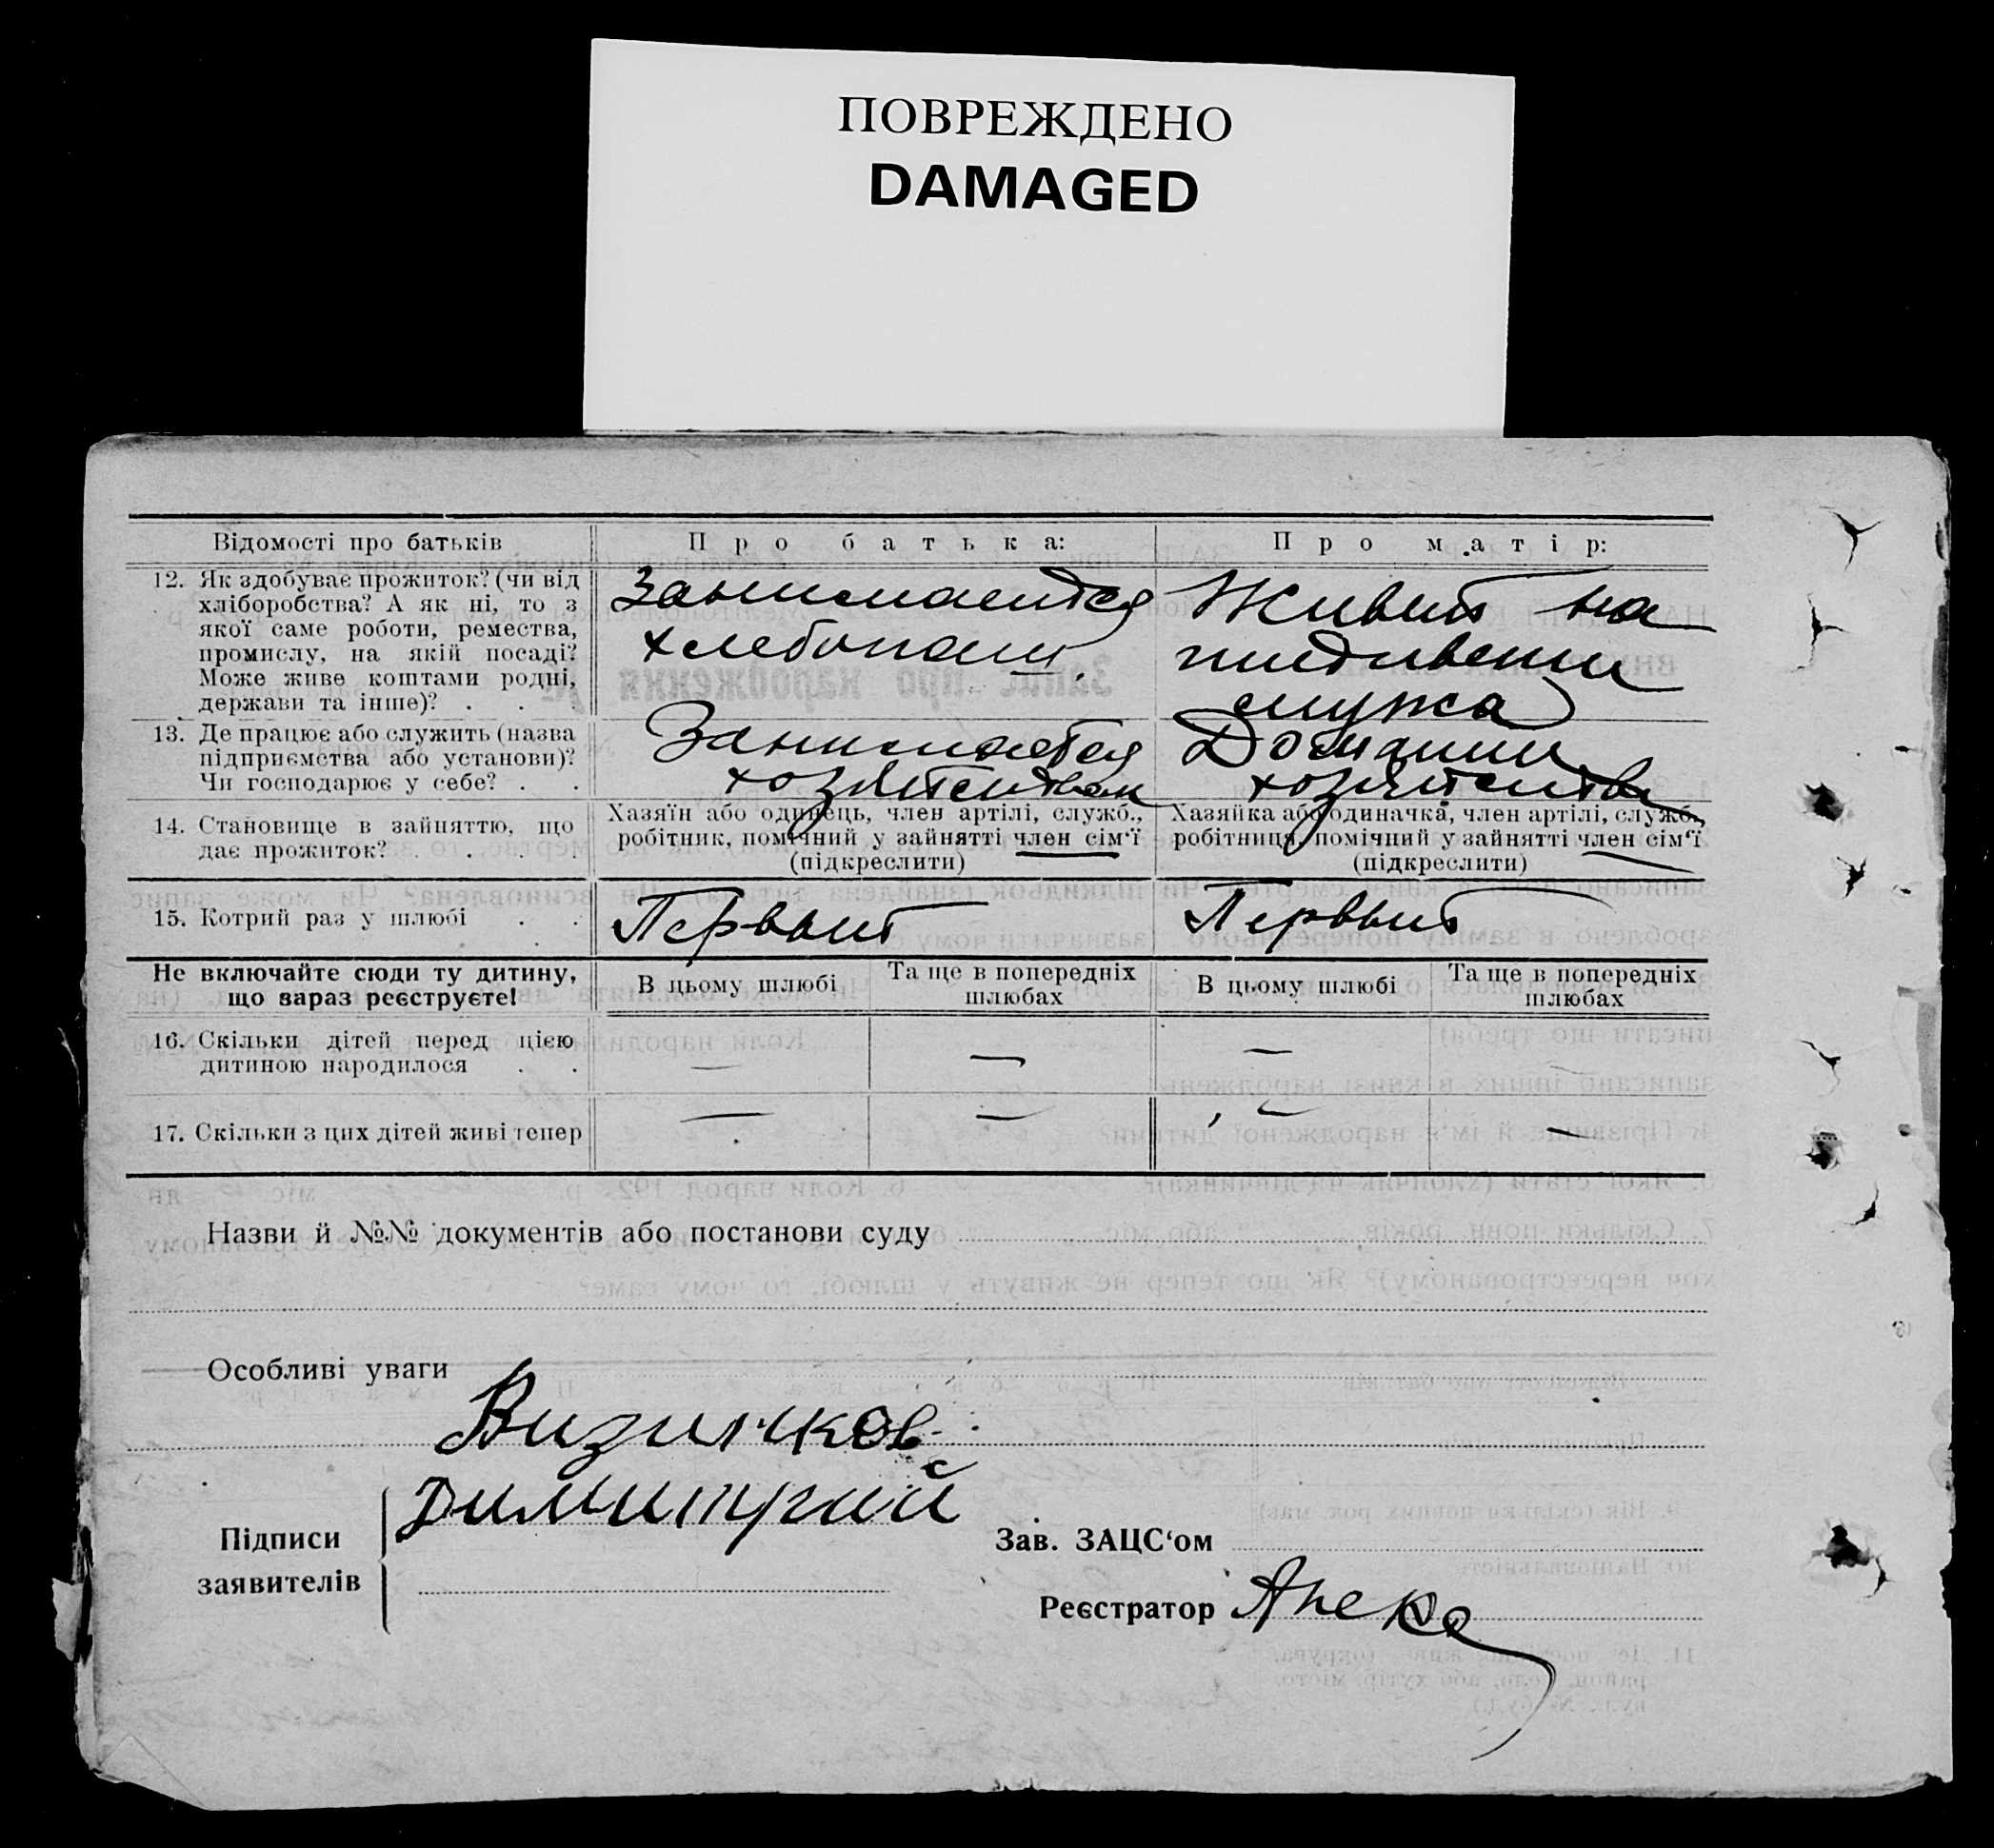 ПОВРЕЖДЕНО
DAMAGED
Відомості про батьків
Про батька:
Про матір:
12. Як здобуває прожиток? (чи від
хліборобства? А як ні, то з
якої саме роботи, ремества,
промислу, на якій посаді?
Може живе коштами родні,
держави та інше)? . .
Занимается
хлебопаш.
Живет на
мужа
13. Де працює або служить (назва
підприємства або установи)?
Чи господарює у себе? . .
Занимается
хозяйством
Домашни
хозяйство
14. Становище в зайняттю, що
дає прожиток? . . . .
Хазяїн або одинець, член артілі, служб.,
робітник, помічний у зайнятті член сім‘ї
(підкреслити)
Хазяйка або одиначка, член артілі, служб.,
робітниця, помічний у зайнятті член сім‘ї
(підкреслити)
15. Котрий раз у шлюбі . .
Первый
Первый
Не включайте сюди ту дитину,
що зараз реєструєте!
В цьому шлюбі
Та ще в попередніх
шлюбах
В цьому шлюбі
Та ще в попередніх
шлюбах
16. Скільки дітей перед цією
дитиною народилося . .
— — — —
17. Скільки з цих дітей живі тепер
— — — —
Назви й №№ документів або постанови суду
Особливі уваги
Димитрий
Підписи
заявителів
Зав. ЗАЦС‘ом
Реєстратор